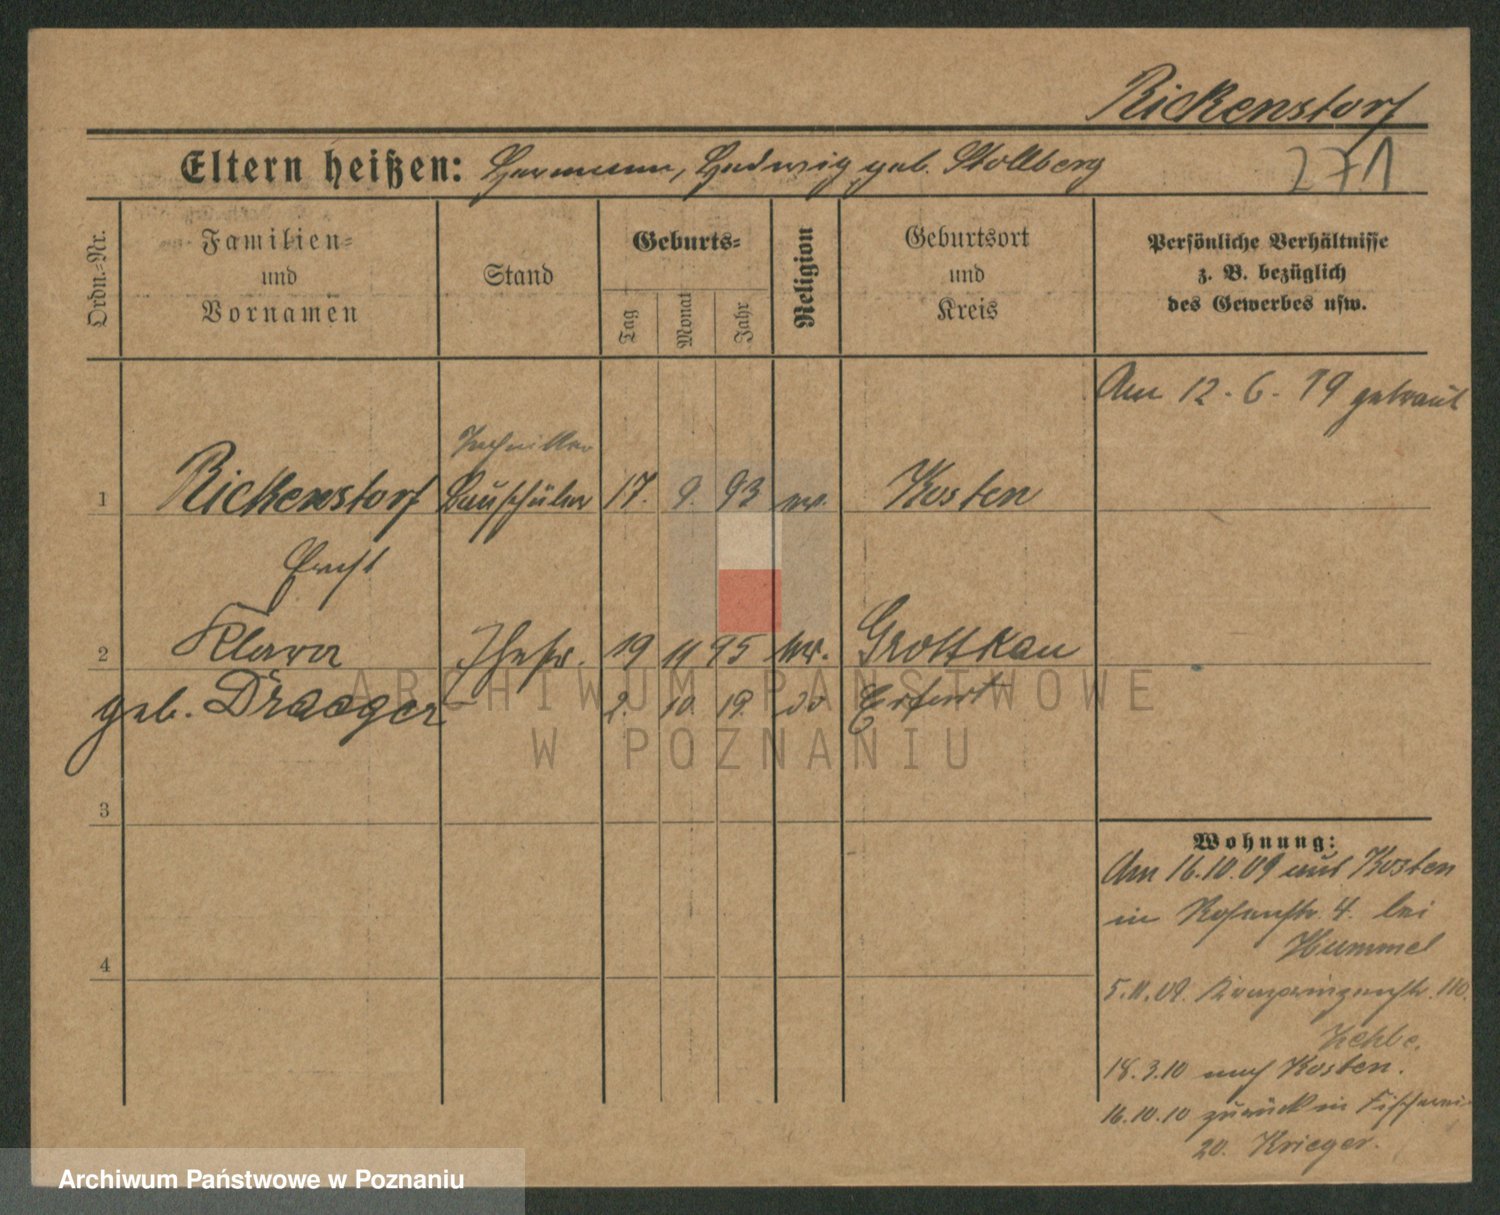 Rickenstorf
Eltern heißen: Hermann, Hedwig geb. Stollberg 271
Ordn.-Nr.
Familien-
und
Vornamen
Stand
Geburts-
Tag
Monat
Jahr
Religion
Geburtsort
und
Kreis
Persönliche Verhältnisse
z. B. bezüglich
des Gewerbes usw.
Am 12.6.19 getraut
Techniker
1 Rickenstorf Bauschüler 17. 9. 93 ev. Kosten
Ernst
2 Klara Ehefr. 19 11 95 ev. Grottkau
geb. Draeger 2. 10. 19. do Erfurt
ARCHIWUM PAŃSTWOWE
W POZNANIU
3
4
Wohnung:
Am 16.10.09 aus Kosten
in Rosenstr. 4. bei
Hummel
5.11.09. Kronprinzenstr. 110.
18.3.10 nach Kosten.
16.10.10 zurück in Fischerei
20. Krieger.
Archiwum Państwowe w Poznaniu